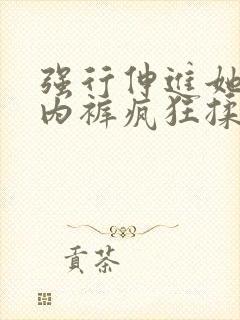 强行伸进她
内裤疯狂揉
贡茶